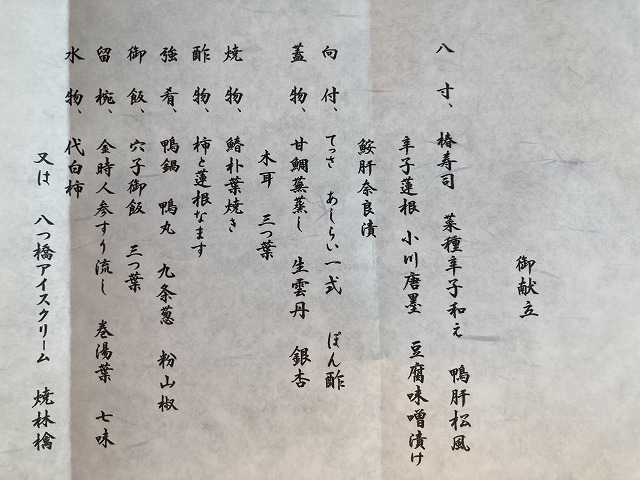 御献立
八寸、 椿寿司 菜種辛子和え 鴨肝松風
辛子蓮根 小川唐墨 豆腐味噌漬け
鮟肝奈良漬
向付、 てっさ あしらい一式 ぽん酢
蓋物、 甘鯛蕪蒸し 生雲丹 銀杏
木耳 三つ葉
焼物、 鰆朴葉焼き
酢物、 柿と蓮根なます
強肴、 鴨鍋 鴨丸 九条葱 粉山椒
御飯、 穴子御飯 三つ葉
留椀、 金時人参すり流し 巻湯葉 七味
水物、 代白柿
又は 八つ橋アイスクリーム 焼林檎